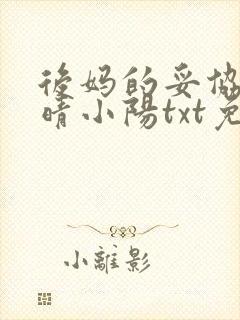 後妈的妥协
晴小陽txt免
小離影